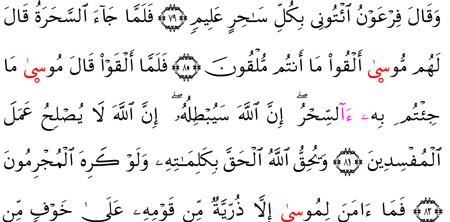 وَقَالَ فِرْعَوْنُ ٱئْتُونِى بِكُلِّ سَـٰحِرٍ عَلِيمٍ ۝٧٩ فَلَمَّا جَآءَ ٱلسَّحَرَةُ قَالَ
لَهُم مُّوسىٰٓ أَلْقُوا۟ مَآ أَنتُم مُّلْقُونَ ۝٨٠ فَلَمَّآ أَلْقَوْا۟ قَالَ مُوسىٰ مَا
جِئْتُم بِهِۦ ءَآلسِّحْرُ ۖ إِنَّ ٱللَّهَ سَيُبْطِلُهُۥٓ ۖ إِنَّ ٱللَّهَ لَا يُصْلِحُ عَمَلَ
ٱلْمُفْسِدِينَ ۝٨١ وَيُحِقُّ ٱللَّهُ ٱلْحَقَّ بِكَلِمَـٰتِهِۦ وَلَوْ كَرِهَ ٱلْمُجْرِمُونَ
۝٨٢ فَمَآ ءَامَنَ لِمُوسىٰٓ إِلَّا ذُرِّيَّةٌ مِّن قَوْمِهِۦ عَلَىٰ خَوْفٍ مِّن